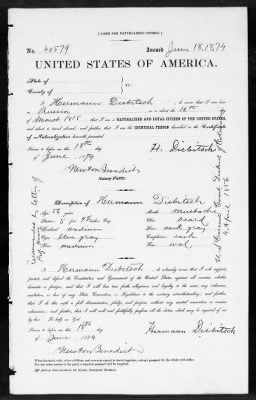 [FORM FOR NATURALIZED CITIZEN.]
No. 40579 Issued June 18, 1874
UNITED STATES OF AMERICA.
State of
County of
I, Hermann Diebitsch, do swear that I was born
in Prussia on the 16th
of March 1818; that I am a NATURALIZED AND LOYAL CITIZEN OF THE UNITED STATES,
and about to travel abroad; and further, that I am the IDENTICAL PERSON described in the Certificate
of Naturalization herewith presented.
Sworn to before me this 18th day
of June 1874
H. Diebitsch
Newton Benedict
Notary Public.
Description of Hermann Diebitsch
Age: 56 years
Mouth: mustache
Stature: 5 feet
Chin: beard
Forehead: medium
Hair: dark gray
Eyes: blue gray
Complexion: dark
Nose: medium
Face: oval
I, Hermann Diebitsch, do solemnly swear that I will support,
protect, and defend the Constitution and Government of the United States against all enemies, whether
domestic or foreign; and that I will bear true faith, allegiance, and loyalty to the same, any ordinance,
resolution, or law of any State, Convention, or Legislature to the contrary notwithstanding; and further,
that I do this with a full determination, pledge, and purpose, without any mental reservation or evasion
whatsoever; and further, that I will well and faithfully perform all the duties which may be required of me
by law. So help me God.
Sworn to before me this 18th day
of June 1874
Hermann Diebitsch
Newton Benedict